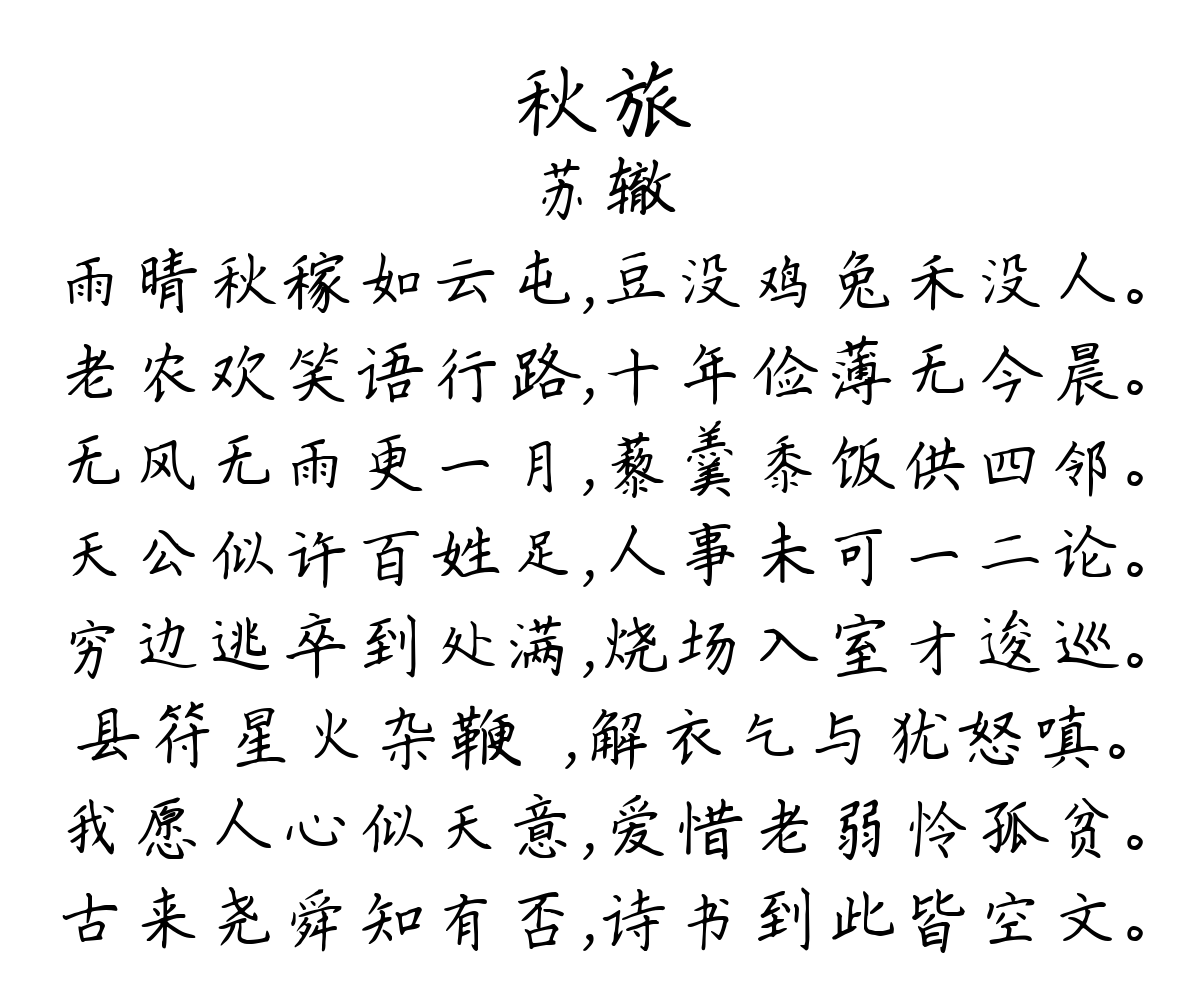 秋旅
苏辙
雨晴秋稼如云屯,豆没鸡兔禾没人。
老农欢笑语行路,十年俭薄无今晨。
无风无雨更一月,藜羹黍饭供四邻。
天公似许百姓足,人事未可一二论。
穷边逃卒到处满,烧场入室才逡巡。
县符星火杂鞭 ,解衣乞与犹怒嗔。
我愿人心似天意,爱惜老弱怜孤贫。
古来尧舜知有否,诗书到此皆空文。